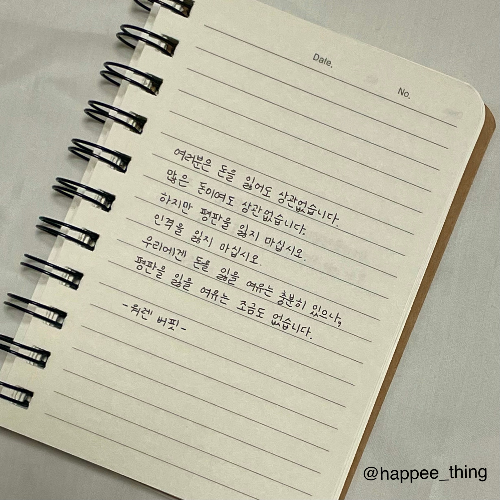 Date.
No.
여러분은 돈을 잃어도 상관없습니다.
많은 돈이여도 상관없습니다.
하지만 평판을 잃지 마십시오.
인격을 잃지 마십시오.
우리에겐 돈을 잃을 여유는 충분히 있으나,
평판을 잃을 여유는 조금도 없습니다.
-워렌 버핏-
@happee_thing